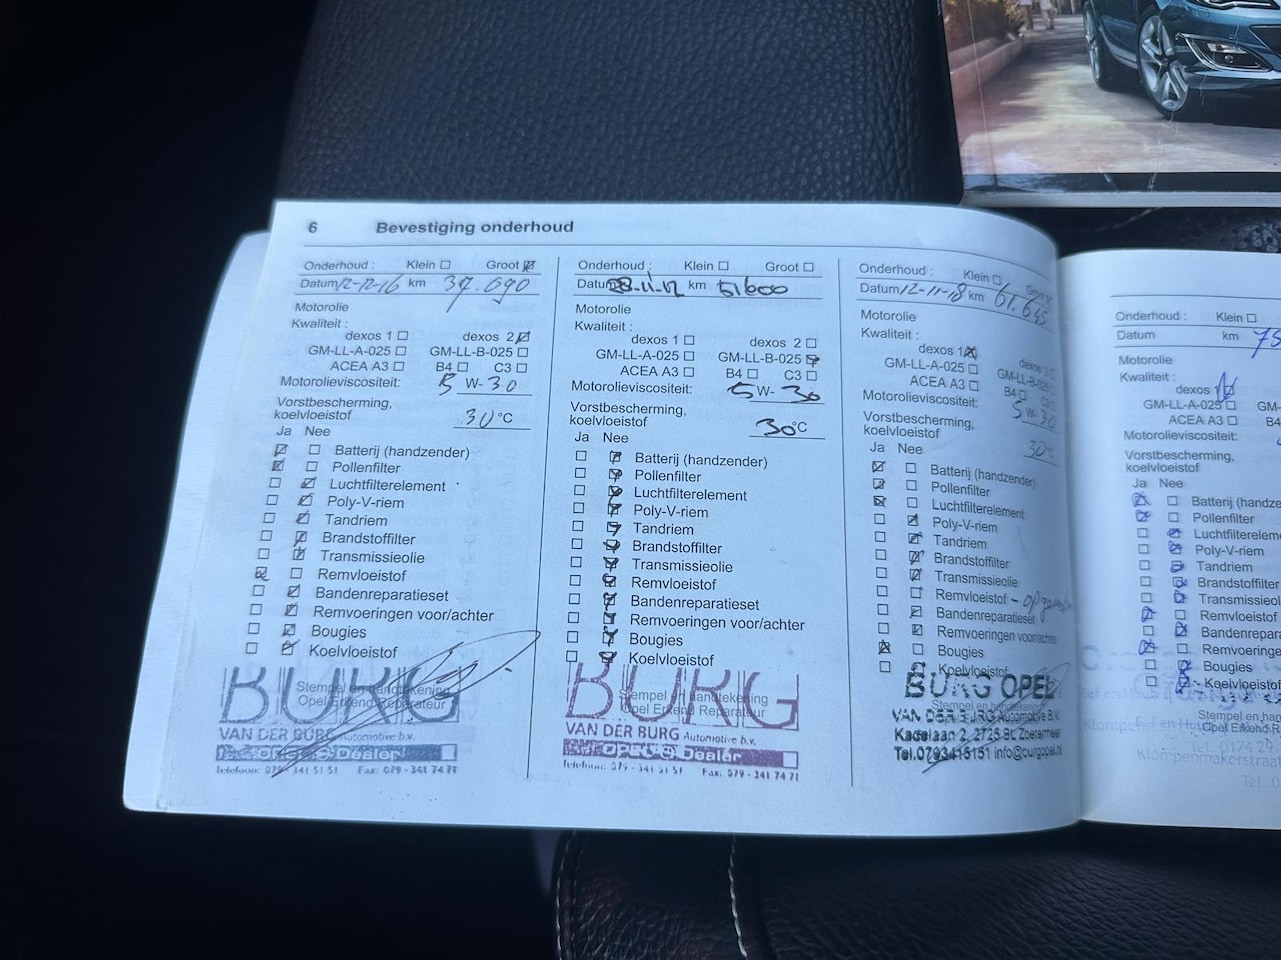 6 Bevestiging onderhoud
Onderhoud : Klein Groot
Datum 12-12-16 km 37.690
Motorolie
Kwaliteit :
dexos 1 dexos 2
GM-LL-A-025 GM-LL-B-025
ACEA A3 B4 C3
Motorolieviscositeit: 5 W- 30
Vorstbescherming,
koelvloeistof 30°C
Ja Nee
Batterij (handzender)
Pollenfilter
Luchtfilterelement
Poly-V-riem
Tandriem
Brandstoffilter
Transmissieolie
Remvloeistof
Bandenreparatieset
Remvoeringen voor/achter
Bougies
Koelvloeistof
Stempel en handtekening
Opel Erkend Reparateur
BURG
VAN DER BURG Automotive b.v.
Dealer
Telefoon: 079 - 341 51 51 Fax: 079 - 341 74 71
Onderhoud : Klein Groot
Datum 28-11-17 km 51600
Motorolie
Kwaliteit :
dexos 1 dexos 2
GM-LL-A-025 GM-LL-B-025
ACEA A3 B4 C3
Motorolieviscositeit: 5 W- 30
Vorstbescherming,
koelvloeistof 30°C
Ja Nee
Batterij (handzender)
Pollenfilter
Luchtfilterelement
Poly-V-riem
Tandriem
Brandstoffilter
Transmissieolie
Remvloeistof
Bandenreparatieset
Remvoeringen voor/achter
Bougies
Koelvloeistof
Stempel en handtekening
Opel Erkend Reparateur
BURG
VAN DER BURG Automotive b.v.
OPEL Dealer
Telefoon: 079 - 341 51 51 Fax: 079 - 341 74 71
Onderhoud : Klein Groot
Datum 12-11-18 km 61.645
Motorolie
Kwaliteit :
dexos 1 dexos 2
GM-LL-A-025 GM-LL-B-025
ACEA A3 B4 C3
Motorolieviscositeit: 5 W-30
Vorstbescherming,
koelvloeistof 30°C
Ja Nee
Batterij (handzender)
Pollenfilter
Luchtfilterelement
Poly-V-riem
Tandriem
Brandstoffilter
Transmissieolie
Remvloeistof
Bandenreparatieset
Remvoeringen voor/achter
Bougies
Koelvloeistof
Stempel en handtekening
BURG OPEL
VAN DER BURG Automotive B.V.
Kadelaan 2, 2725 BL Zoetermeer
Tel.0793415151 info@burgopel.nl
Onderhoud : Klein
Datum km 75
Motorolie
Kwaliteit :
dexos 1
GM-LL-A-025 GM-
ACEA A3
Motorolieviscositeit:
Vorstbescherming,
koelvloeistof
Ja Nee
Batterij (handze
Pollenfilter
Luchtfilterelem
Poly-V-riem
Tandriem
Brandstoffilter
Transmissieol
Remvloeistof
Bandenrepara
Remvoeringe
Bougies
Koelvloeistof
Stempel en han
Opel Erkend R
Klompenmakerstraat